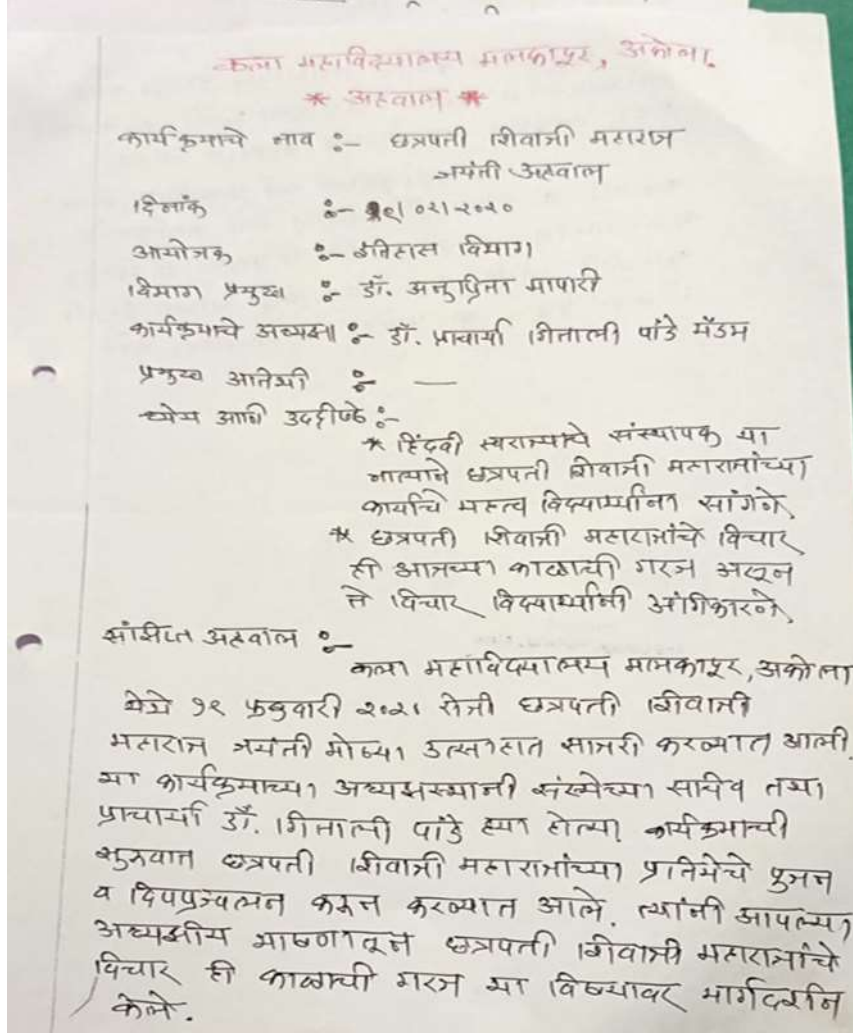 कला महाविद्यालय मलकापूर, अकोला.
* अहवाल *
कार्यक्रमाचे नाव :- छत्रपती शिवाजी महाराज
जयंती अहवाल
दिनांक :- १९/०२/२०२०
आयोजक :- इतिहास विभाग
विभाग प्रमुख :- डॉ. अनुप्रिता मापारी
कार्यक्रमाचे अध्यक्ष :- डॉ. प्राचार्या गिताली पांडे मॅडम
प्रमुख अतिथी :- —
ध्येय आणि उद्दीष्टे :-
* हिंदवी स्वराज्याचे संस्थापक या
नात्याने छत्रपती शिवाजी महाराजांच्या
कार्याचे महत्व विद्यार्थ्यांना सांगणे.
* छत्रपती शिवाजी महाराजांचे विचार
ही आजच्या काळाची गरज असून
ते विचार विद्यार्थ्यांनी अंगिकारणे.
संक्षिप्त अहवाल :-
कला महाविद्यालय मलकापूर, अकोला
येथे १९ फेब्रुवारी २०२१ रोजी छत्रपती शिवाजी
महाराज जयंती मोठ्या उत्साहात साजरी करण्यात आली.
या कार्यक्रमाच्या अध्यक्षस्थानी संस्थेच्या सचिव तथा
प्राचार्या डॉ. गिताली पांडे ह्या होत्या कार्यक्रमाची
सुरुवात छत्रपती शिवाजी महाराजांच्या प्रतिमेचे पुजन
व दिपप्रज्वलन करून करण्यात आले. त्यांनी आपल्या
अध्यक्षीय भाषणातून छत्रपती शिवाजी महाराजांचे
विचार ही काळाची गरज या विषयावर मार्गदर्शन
केले.